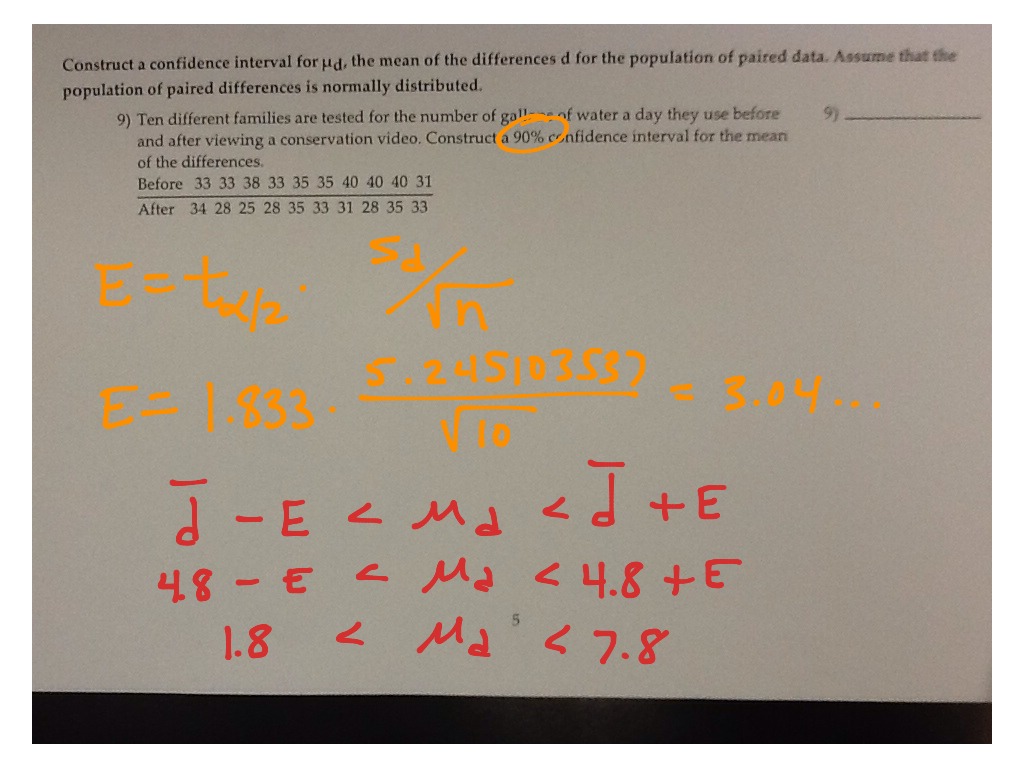 Construct a confidence interval for μd, the mean of the differences d for the population of paired data. Assume that the
population of paired differences is normally distributed.
9) Ten different families are tested for the number of gallons of water a day they use before 9) ______________
and after viewing a conservation video. Construct a 90% confidence interval for the mean
of the differences.
Before 33 33 38 33 35 35 40 40 40 31
After 34 28 25 28 35 33 31 28 35 33
E = tα/2 · sd/√n
E = 1.833 · 5.245103537/√10 = 3.04...
d̅ - E < μd < d̅ + E
4.8 - E < μd < 4.8 + E
5
1.8 < μd < 7.8